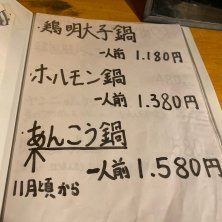 鶏明太子鍋
一人前 1.180円
ホルモン鍋
一人前 1.380円
あんこう鍋
一人前 1.580円
11月頃から